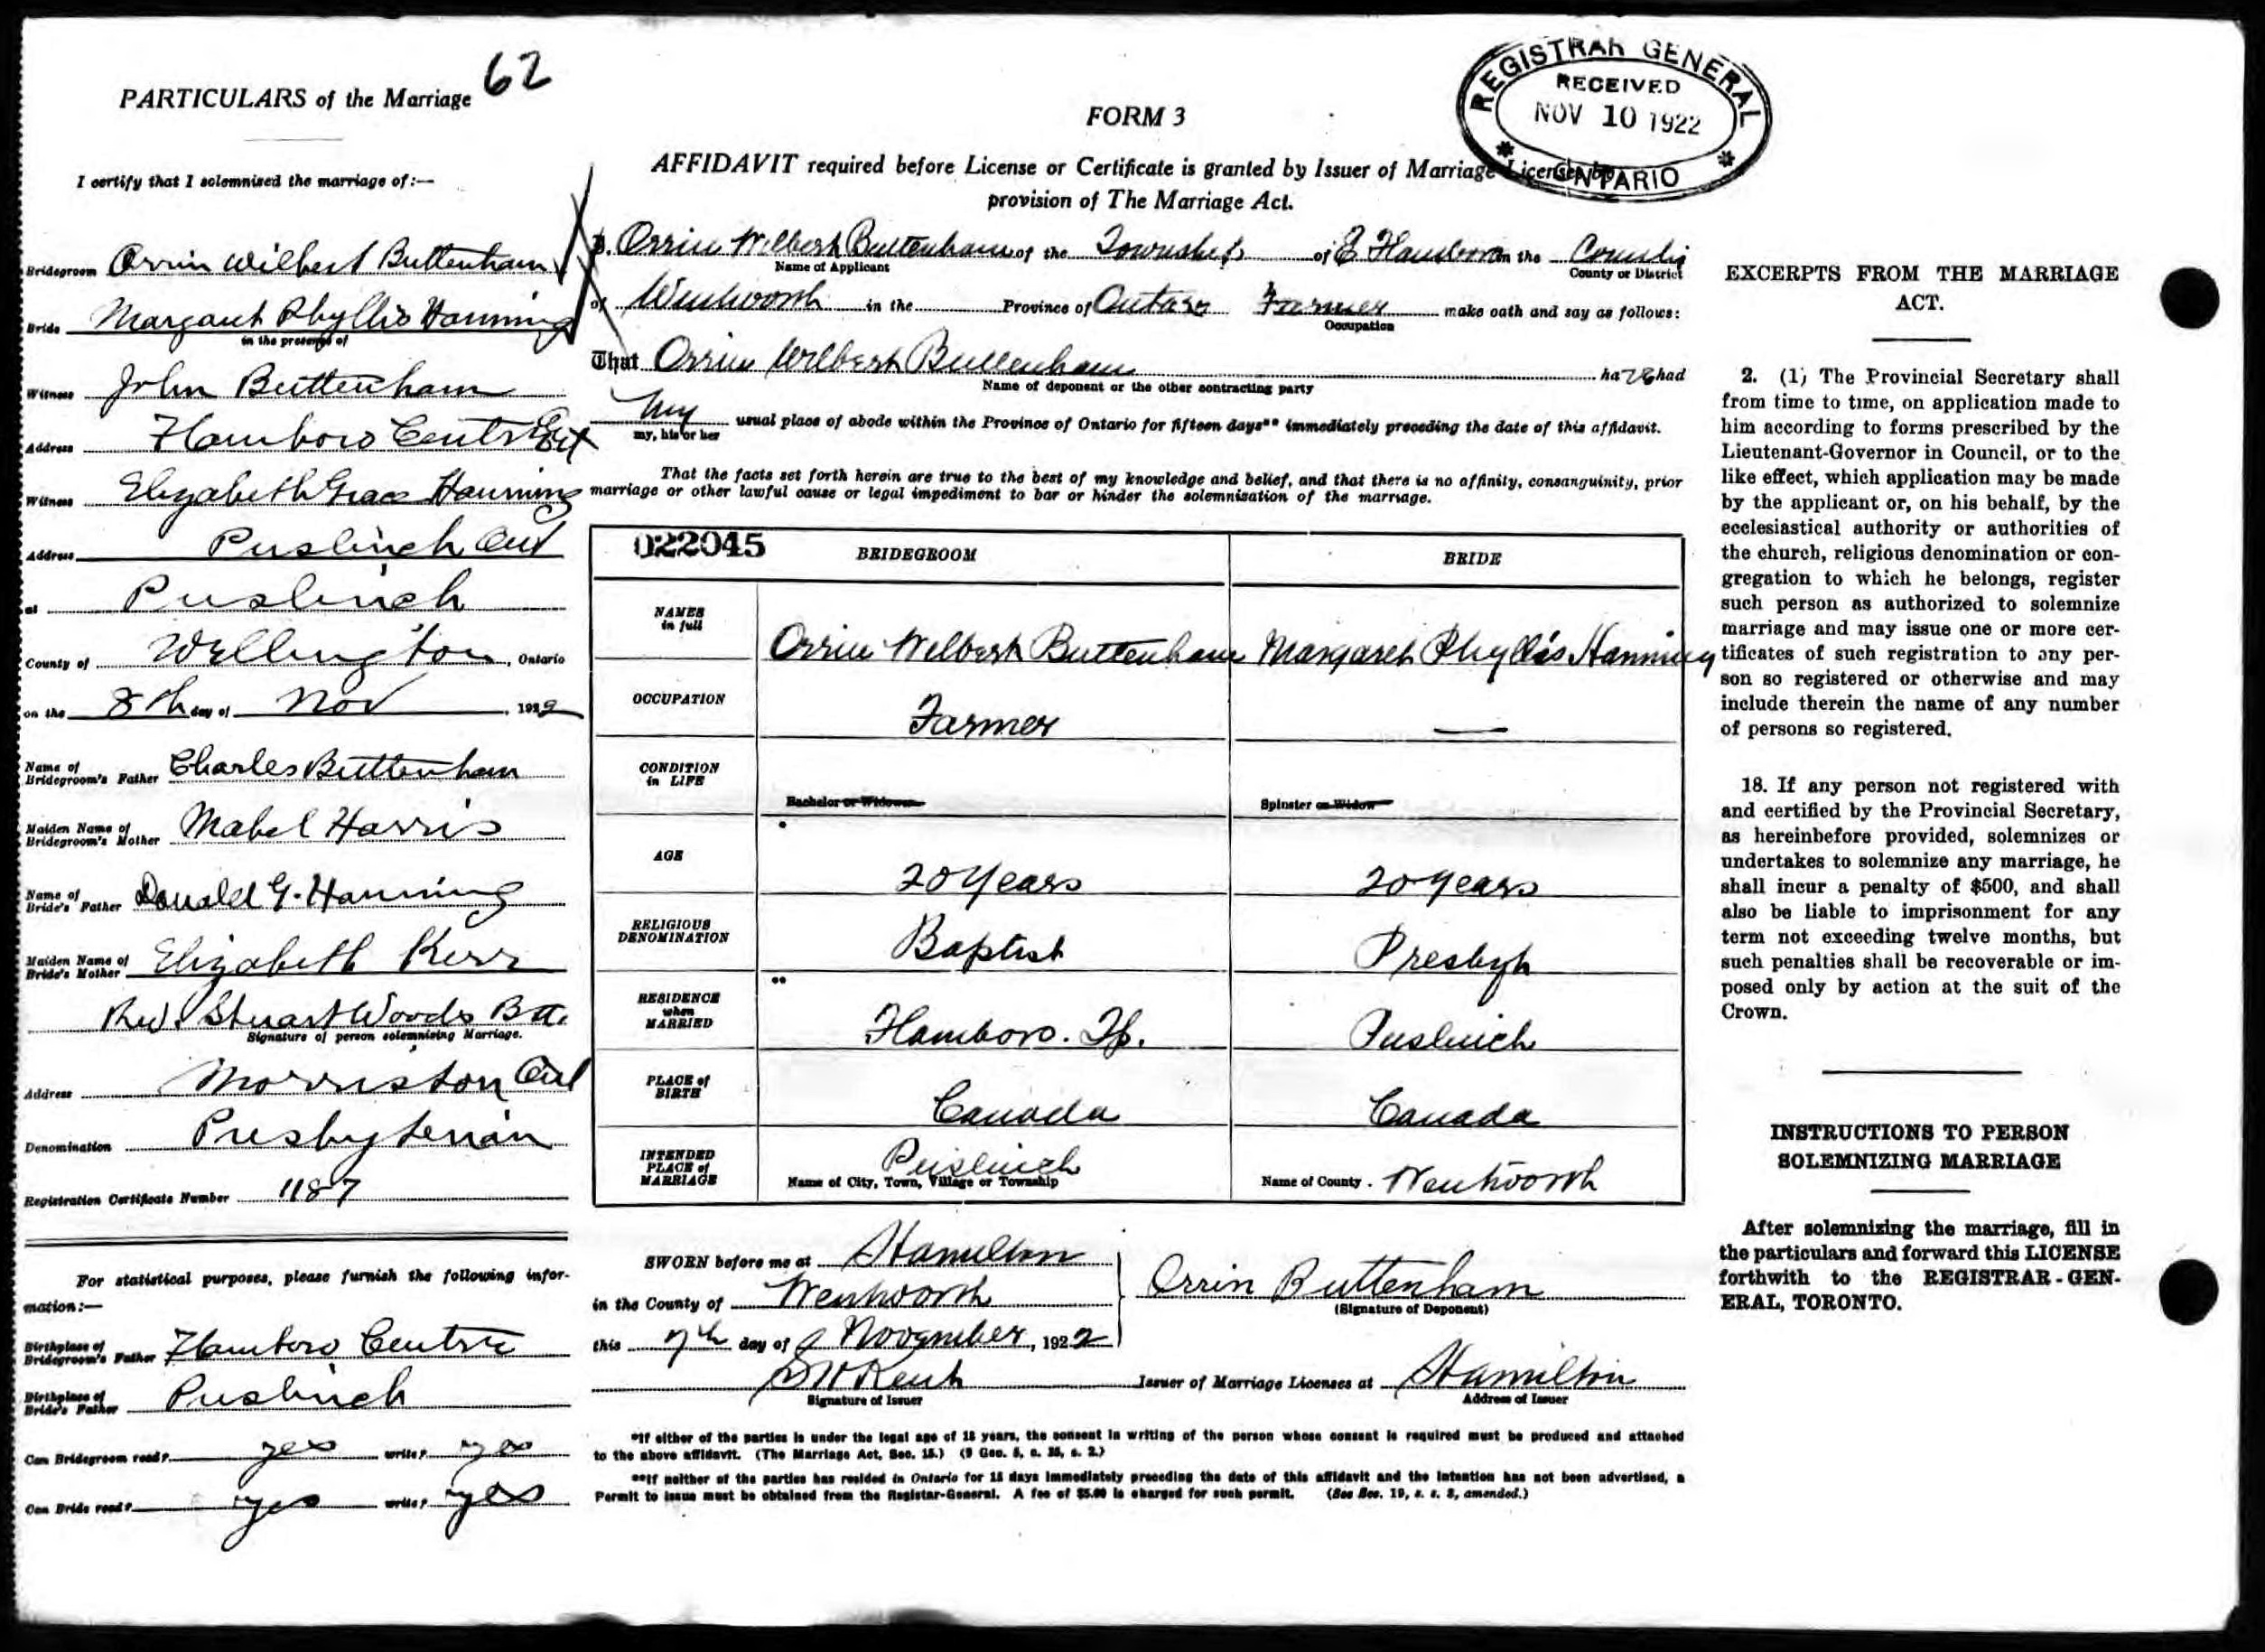 PARTICULARS of the Marriage 62
I certify that I solemnized the marriage of:—
Bridegroom Orrin Wilbert Buttenham
Bride Margaret Phyllis Hanning
in the presence of
Witness John Buttenham
Address Flamboro Centre Ont
Witness Elizabeth Grace Hanning
Address Puslinch Ont
at Puslinch
County of Wellington, Ontario
on the 8th day of Nov 1922
Name of Bridegroom's Father Charles Buttenham
Maiden Name of Bridegroom's Mother Mabel Harris
Name of Bride's Father Donald G. Hanning
Maiden Name of Bride's Mother Elizabeth Kerr
Rev. Stuart Woods
Signature of person solemnizing Marriage.
Address Morriston Ont
Denomination Presbyterian
Registration Certificate Number 1187
For statistical purposes, please furnish the following infor-
mation:—
Birthplace of Bridegroom's Father Flamboro Centre
Birthplace of Bride's Father Puslinch
Can Bridegroom read? yes write? yes
Can Bride read? yes write? yes
REGISTRAR GENERAL
RECEIVED
NOV 10 1922
ONTARIO
FORM 3
AFFIDAVIT required before License or Certificate is granted by Issuer of Marriage Licenses by
provision of The Marriage Act.
I, Orrin Wilbert Buttenham of the Township of E Flamboro in the County
Name of Applicant County or District
of Wentworth in the Province of Ontario Farmer make oath and say as follows:
Occupation
That Orrin Wilbert Buttenham has had
Name of deponent or the other contracting party
my usual place of abode within the Province of Ontario for fifteen days** immediately preceding the date of this affidavit.
my, his or her
That the facts set forth herein are true to the best of my knowledge and belief, and that there is no affinity, consanguinity, prior
marriage or other lawful cause or legal impediment to bar or hinder the solemnization of the marriage.
022045 BRIDEGROOM BRIDE
NAMES in full Orrin Wilbert Buttenham Margaret Phyllis Hanning
OCCUPATION Farmer —
CONDITION in LIFE Bachelor or Widower Spinster or Widow
AGE * 20 Years 20 years
RELIGIOUS DENOMINATION Baptist Presbyt
RESIDENCE when MARRIED ** Flamboro. Tp. Puslinch
PLACE of BIRTH Canada Canada
INTENDED PLACE of MARRIAGE Puslinch Name of City, Town, Village or Township Name of County. Wentworth
SWORN before me at Hamilton
in the County of Wentworth
this 7th day of November, 1922
Orrin Buttenham
(Signature of Deponent)
Issuer of Marriage Licenses at Hamilton
Signature of Issuer Address of Issuer
*If either of the parties is under the legal age of 18 years, the consent in writing of the person whose consent is required must be produced and attached
to the above affidavit. (The Marriage Act, Sec. 15.) (9 Geo. 5, c. 35, s. 2.)
**If neither of the parties has resided in Ontario for 15 days immediately preceding the date of this affidavit and the intention has not been advertised, a
Permit to issue must be obtained from the Registar-General. A fee of $5.00 is charged for such permit. (See Sec. 19, s. s. 3, amended.)
EXCERPTS FROM THE MARRIAGE
ACT.
2. (1) The Provincial Secretary shall
from time to time, on application made to
him according to forms prescribed by the
Lieutenant-Governor in Council, or to the
like effect, which application may be made
by the applicant or, on his behalf, by the
ecclesiastical authority or authorities of
the church, religious denomination or con-
gregation to which he belongs, register
such person as authorized to solemnize
marriage and may issue one or more cer-
tificates of such registration to any per-
son so registered or otherwise and may
include therein the name of any number
of persons so registered.
18. If any person not registered with
and certified by the Provincial Secretary,
as hereinbefore provided, solemnizes or
undertakes to solemnize any marriage, he
shall incur a penalty of $500, and shall
also be liable to imprisonment for any
term not exceeding twelve months, but
such penalties shall be recoverable or im-
posed only by action at the suit of the
Crown.
INSTRUCTIONS TO PERSON
SOLEMNIZING MARRIAGE
After solemnizing the marriage, fill in
the particulars and forward this LICENSE
forthwith to the REGISTRAR-GEN-
ERAL, TORONTO.